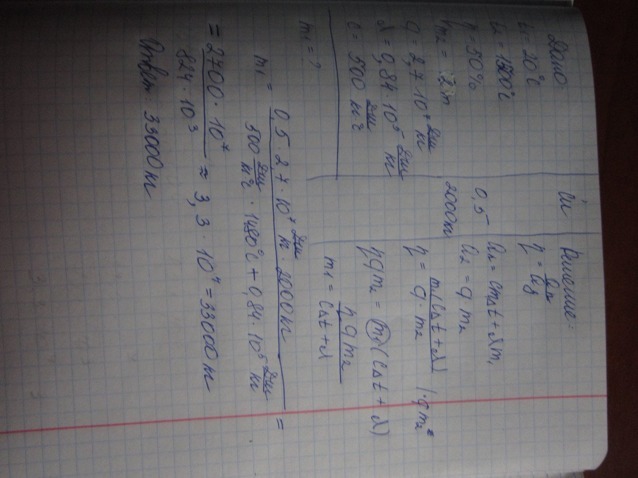 Дано
t₁ = 20°C
t₂ = 1500°C
η = 50%
m₂ = 2т
q = 2,7·10⁷ Дж/кг
λ = 0,84·10⁵ Дж/кг
c = 500 Дж/кг°C
m₁ = ?
Си
0,5
2000кг
Решение:
Q₁ = cm₁Δt + λm₁
Q₂ = qm₂
η = m₁(cΔt + λ) / q·m₂ | ·qm₂
ηqm₂ = m₁(cΔt + λ)
m₁ = ηqm₂ / cΔt + λ
m₁ = 0,5·2,7·10⁷ Дж/кг·2000кг / 500 Дж/кг°C · 1480°C + 0,84·10⁵ Дж/кг =
= 2700·10⁷ / 824·10³ ≈ 3,3·10⁴ = 33000кг
Ответ: 33000кг